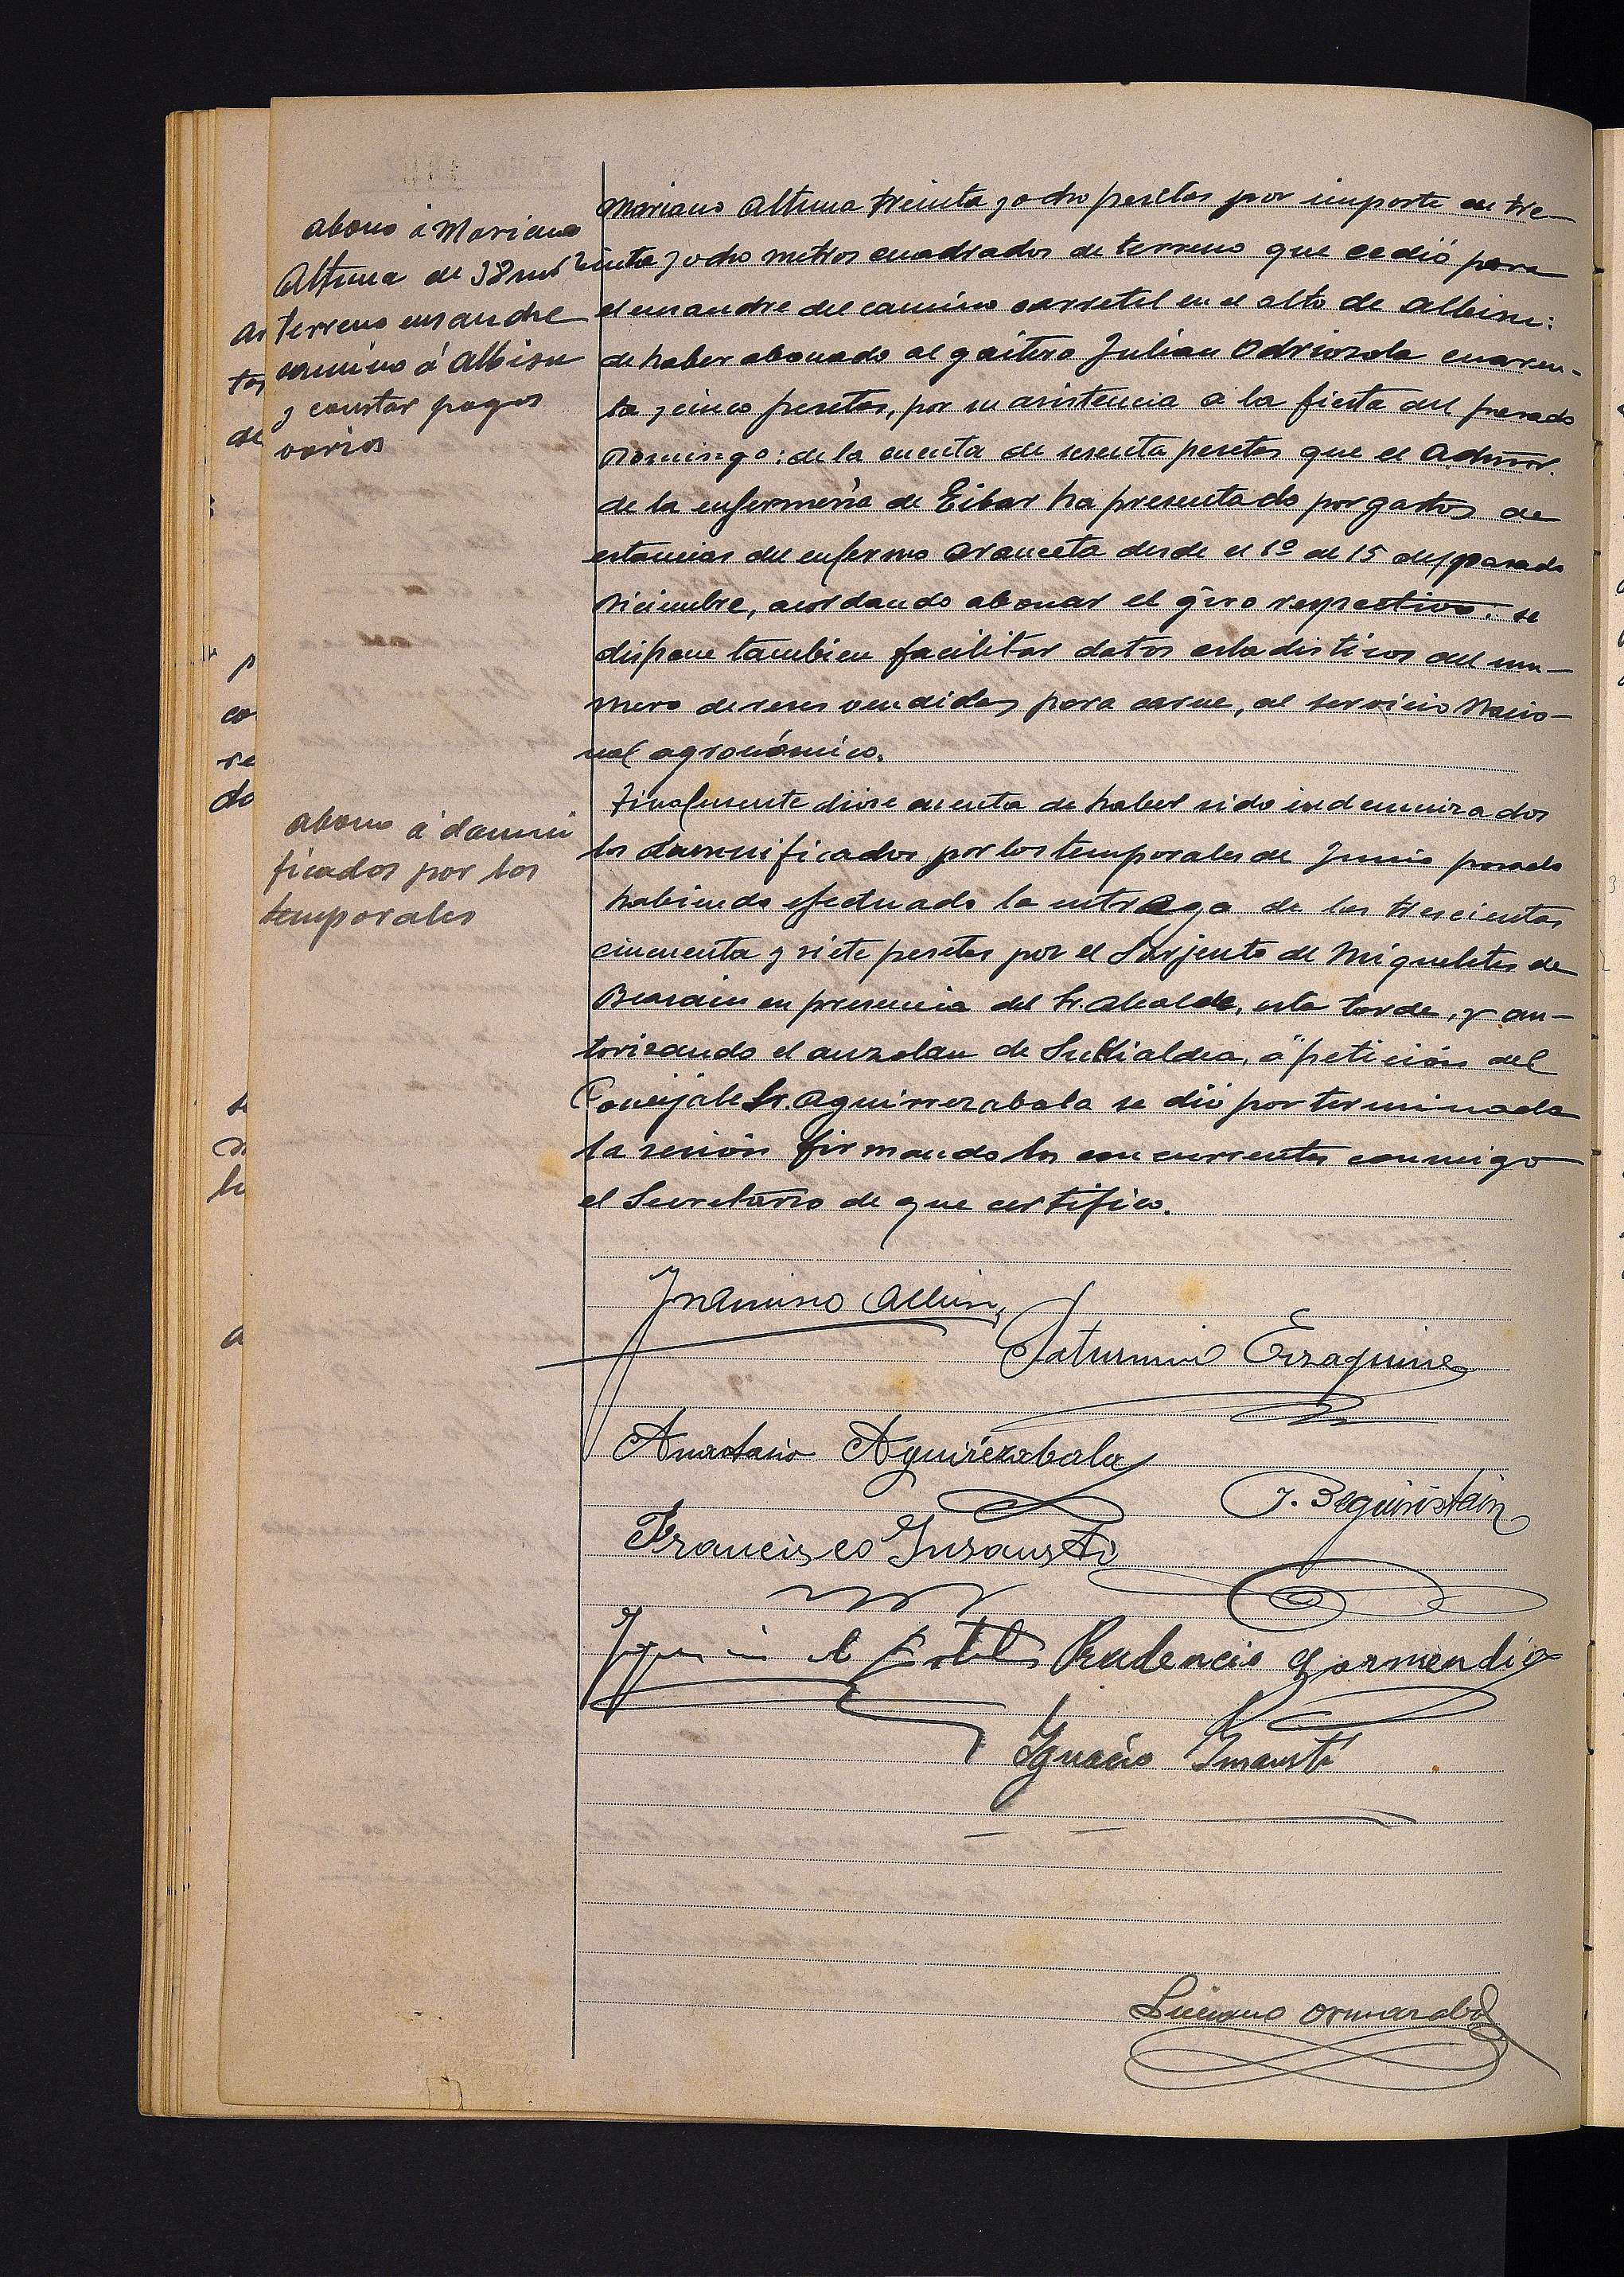 abono á Mariano
Altuna de 38 mts²
terreno ensanche
camino á Albisu
y constar pagos
varios
Mariano Altuna treinta y ocho pesetas por importe de tre-
inta y ocho metros cuadrados de terreno que cedió para
el ensanche del camino carretil en el alto de Albisu:
de haber abonado al gaitero Julián Odriozola cuaren-
ta y cinco pesetas, por su asistencia a la fiesta del pasado
Domingo: de la cuenta de sesenta pesetas que el Admor.
de la enfermería de Eibar ha presentado por gastos de
estancias del enfermo Aranceta desde el 1º al 15 del pasado
Diciembre, acordando abonar el giro respectivo: se
dispone tambien facilitar datos estadisticos del nu-
mero de reses vendidas para carne, al servicio Nacio-
nal agronómico.
abono á damni
ficados por los
temporales
Finalmente dióse cuenta de haber sido indemnizados
los damnificados por los temporales de Junio pasado
habiendo efectuado la entrega de las trescientas
cincuenta y siete pesetas por el Sarjento de Miqueletes de
Beasain en presencia del Sr. Alcalde, esta tarde, y au-
torizando el auzolan de Sutialdea, á petición del
Concejal Sr. Aguirrezabala se dió por terminada
la sesión firmando los concurrentes conmigo
el Secretario de que certifico.
Francisco Albisu
Saturnino Eizaguirre
Anastasio Aguirezabala
J. Beguiristain
Francisco Insausti
Prudencio Garmendia
Ignacio Insausti
Luciano Ormazabal